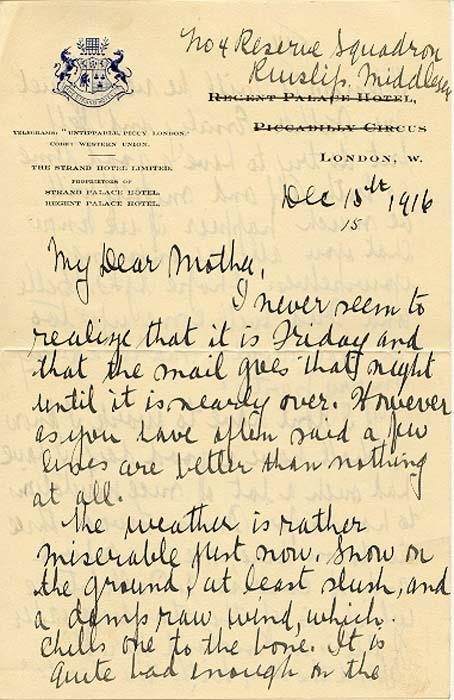 No 4 Reserve Squadron
Ruislip. Middlesex
REGENT PALACE HOTEL,
PICCADILLY CIRCUS
LONDON, W.
TELEGRAMS, "UNTIPPABLE, PICCY, LONDON."
CODE: WESTERN UNION.
THE STRAND HOTEL LIMITED.
PROPRIETORS OF
STRAND PALACE HOTEL.
REGENT PALACE HOTEL.
Dec 15th, 1916
15
My Dear Mother,
I never seem to
realize that it is Friday and
that the mail goes that night
until it is nearly over. However
as you have often said a few
lines are better than nothing
at all.
The weather is rather
miserable just now. Snow on
the ground, at least slush, and
a damp raw wind, which
chills one to the bone. It is
quite bad enough on the